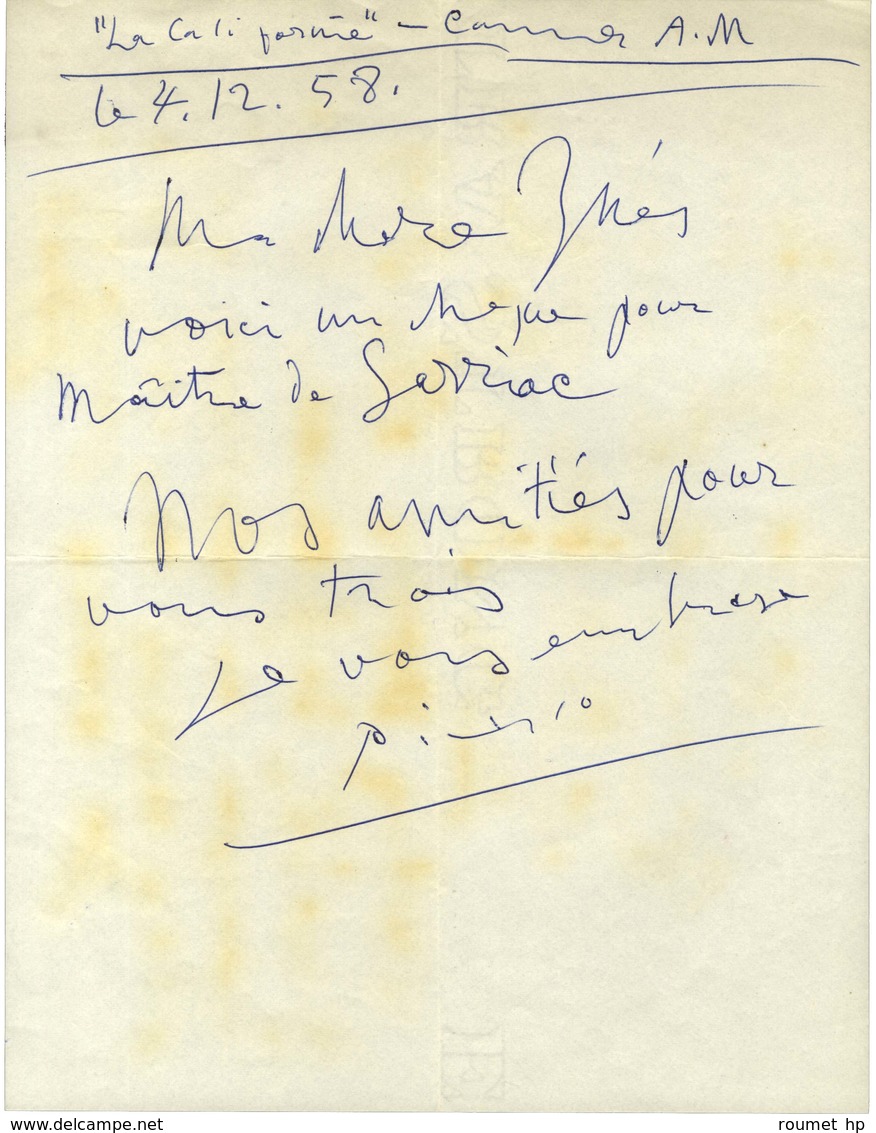 "La Californie" - Cannes A.M
le 4.12.58.
Ma chère Inès
voici un chèque pour
Maître de Sarriac
Nos amitiés pour
vous trois
Je vous embrasse
Picasso
www.delcampe.net
roumet hp